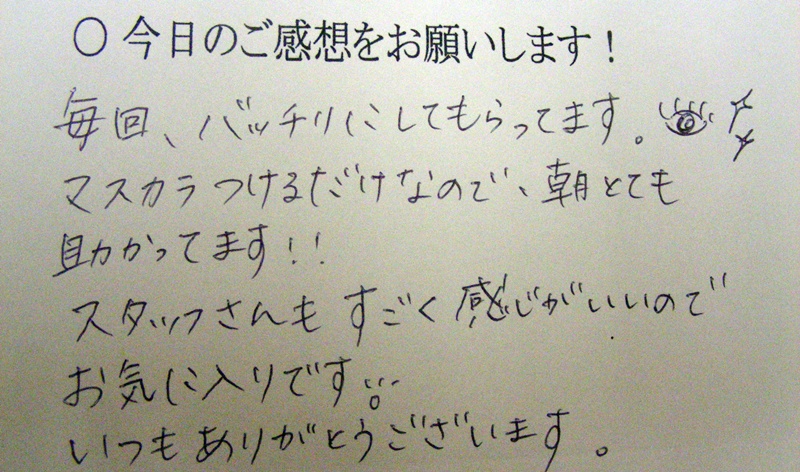 〇今日のご感想をお願いします!
毎回、バッチリにしてもらってます。
マスカラつけるだけなので、朝とても
助かってます!!
スタッフさんもすごく感じがいいので
お気に入りです
いつもありがとうございます。